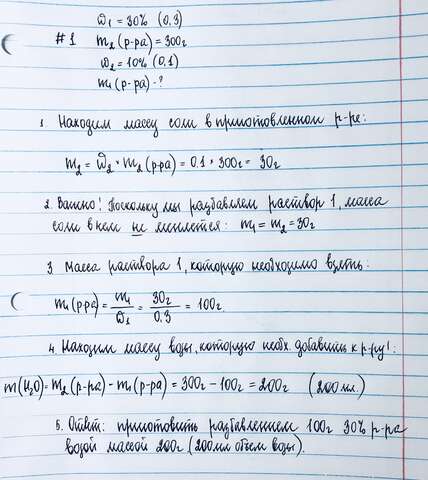 ω₁ = 30% (0,3)
#1 m₂ (р-ра) = 300г
ω₂ = 10% (0,1)
m₁ (р-ра) - ?
1. Находим массу соли в приготовленном р-ре:
m₂ = ω₂ · m₂ (р-ра) = 0.1 · 300г = 30г
2. Важно! Поскольку мы разбавляем раствор 1, масса
соли в нем не меняется: m₁ = m₂ = 30г
3. Масса раствора 1, которую необходимо взять:
m₁ (р-ра) = m₁/ω₁ = 30г/0.3 = 100г.
4. Находим массу воды, которую необх. добавить к р-ру 1:
m(H₂O) = m₂ (р-ра) - m₁ (р-ра) = 300г - 100г = 200г (200мл.)
5. Ответ: приготовить разбавлением 100г 30% р-ра
водой массой 200г (200мл объем воды).